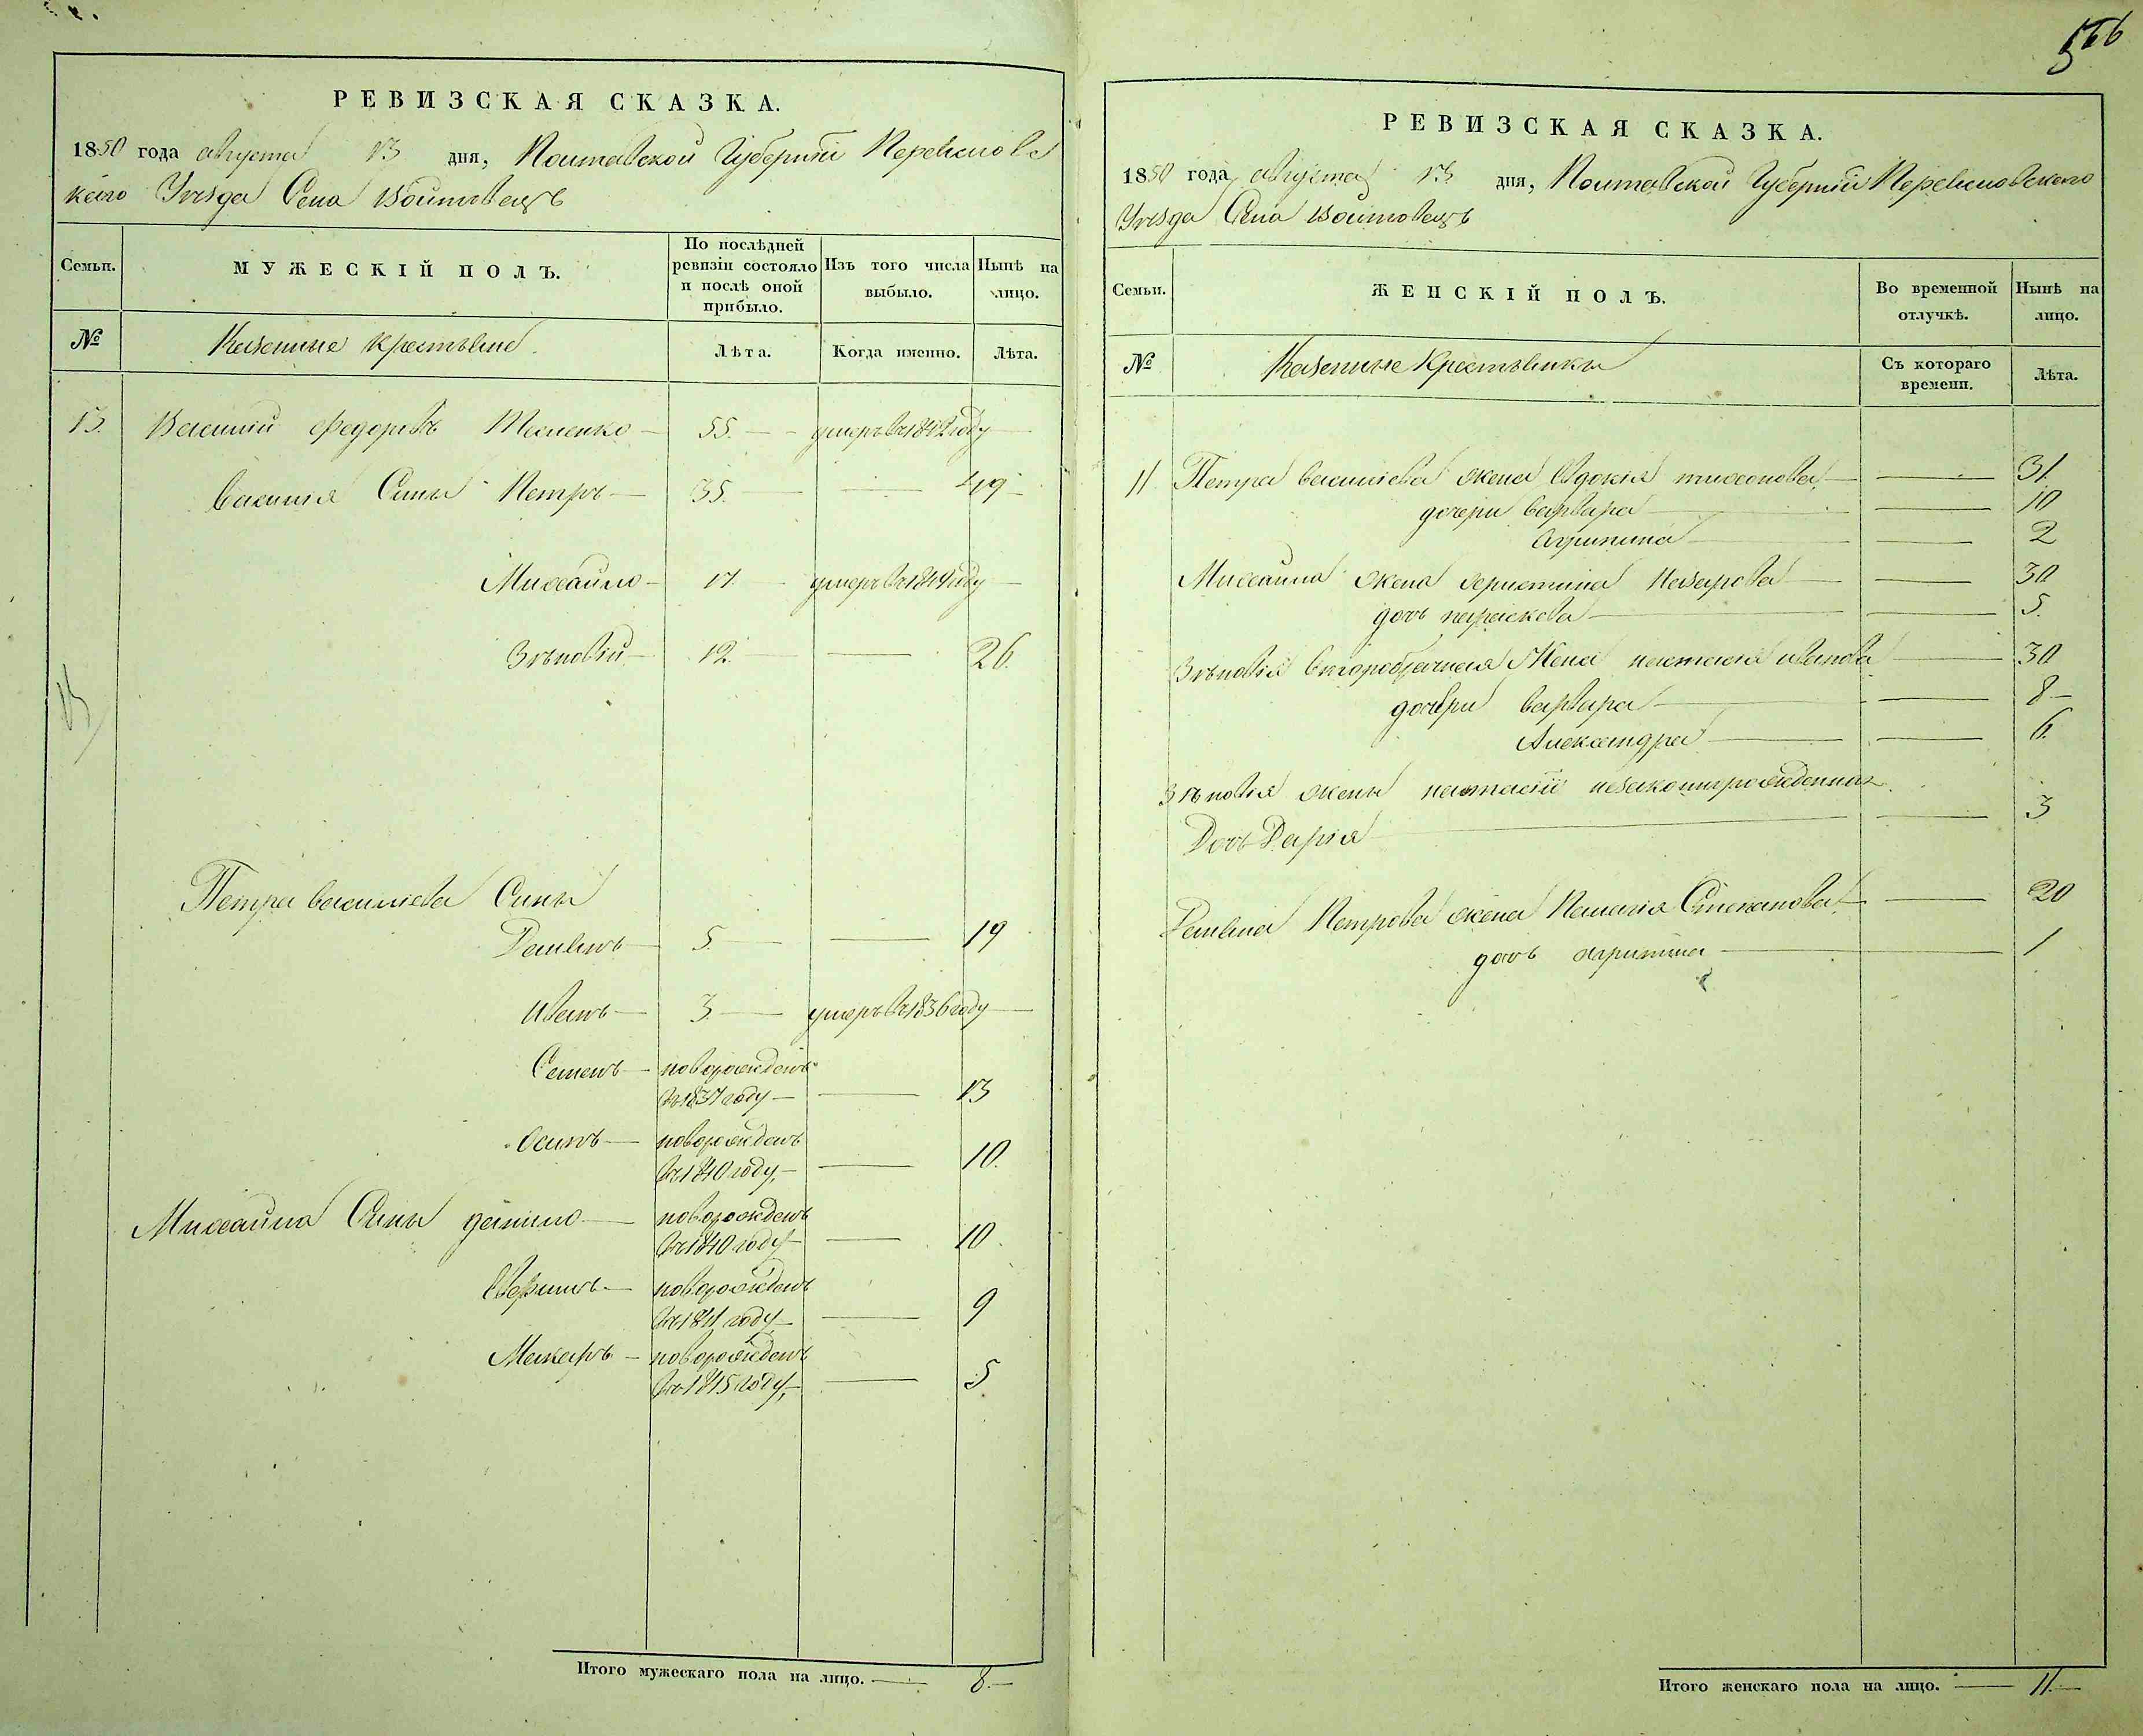 566
РЕВИЗСКАЯ СКАЗКА.
1850 года августа 13 дня, Полтавской Губерніи Переяслов
скаго Уѣзда Села Войтовецъ
Семьи.
МУЖЕСКІЙ ПОЛЪ.
По послѣдней ревизіи состояло и послѣ оной прибыло.
Изъ того числа выбыло.
Нынѣ на лицо.
№
Казенные крестьяне
Лѣта.
Когда именно.
Лѣта.
13. Василий Федоровъ 55. умеръ въ 1842 году
Василия Сыны Петръ 35. 49
Михайло 17. умеръ въ 1849 году
Зѣновій 12. 26.
Петра Василіева Сыны
Демьянъ 5 19
Иванъ 3. умеръ въ 1836 году
Семенъ новорожденъ
въ 1837 году 13
Осипъ новорожденъ
въ 1840 году, 10.
Михайла Сыны данило новорожденъ
въ 1840 году 10.
новорожденъ
въ 1841 году 9
Макаръ новорожденъ
въ 1845 году, 5
Итого мужескаго пола на лицо. 8.
РЕВИЗСКАЯ СКАЗКА.
1850 года августа 13 дня, Полтавской Губерніи Переясловскаго
Уѣзда Села Войтовецъ
Семьи.
ЖЕНСКІЙ ПОЛЪ.
Во временной отлучкѣ.
Нынѣ на лицо.
№
Казенные Крестьянки
Съ котораго времени.
Лѣта.
11 Петра василіева жена Евдокія тихонова 31.
дочери варвара 10
Агрипина 2
Михайла жена христина Назарова 30
дочь параскева 5.
Зѣновія второбрачная Жена настасія иванова 30
дочери варвара 8
Александра 6.
Зѣновія жены настасіи незаконнорожденная
Дочь Дарія 3
Демьяна Петрова жена Пелагія Степанова 20
дочь христина 1
Итого женскаго пола на лицо. 11.